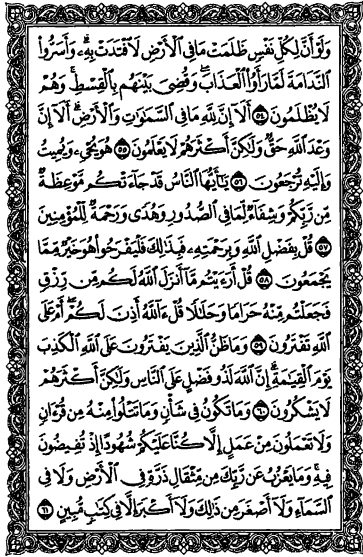 وَلَوْ أَنَّ لِكُلِّ نَفْسٍ ظَلَمَتْ مَا فِي ٱلْأَرْضِ لَٱفْتَدَتْ بِهِۦ وَأَسَرُّوا۟
ٱلنَّدَامَةَ لَمَّا رَأَوُا۟ ٱلْعَذَابَ وَقُضِىَ بَيْنَهُم بِٱلْقِسْطِ وَهُمْ
لَا يُظْلَمُونَ ٥٤ أَلَآ إِنَّ لِلَّهِ مَا فِي ٱلسَّمَـٰوَٰتِ وَٱلْأَرْضِ أَلَآ إِنَّ
وَعْدَ ٱللَّهِ حَقٌّ وَلَـٰكِنَّ أَكْثَرَهُمْ لَا يَعْلَمُونَ ٥٥ هُوَ يُحْىِۦ وَيُمِيتُ
وَإِلَيْهِ تُرْجَعُونَ ٥٦ يَـٰٓأَيُّهَا ٱلنَّاسُ قَدْ جَآءَتْكُم مَّوْعِظَةٌ
مِّن رَّبِّكُمْ وَشِفَآءٌ لِّمَا فِي ٱلصُّدُورِ وَهُدًى وَرَحْمَةٌ لِّلْمُؤْمِنِينَ
٥٧ قُلْ بِفَضْلِ ٱللَّهِ وَبِرَحْمَتِهِۦ فَبِذَٰلِكَ فَلْيَفْرَحُوا۟ هُوَ خَيْرٌ مِّمَّا
يَجْمَعُونَ ٥٨ قُلْ أَرَءَيْتُم مَّآ أَنزَلَ ٱللَّهُ لَكُم مِّن رِّزْقٍ
فَجَعَلْتُم مِّنْهُ حَرَامًا وَحَلَـٰلًا قُلْ ءَآللَّهُ أَذِنَ لَكُمْ أَمْ عَلَى
ٱللَّهِ تَفْتَرُونَ ٥٩ وَمَا ظَنُّ ٱلَّذِينَ يَفْتَرُونَ عَلَى ٱللَّهِ ٱلْكَذِبَ
يَوْمَ ٱلْقِيَـٰمَةِ إِنَّ ٱللَّهَ لَذُو فَضْلٍ عَلَى ٱلنَّاسِ وَلَـٰكِنَّ أَكْثَرَهُمْ
لَا يَشْكُرُونَ ٦٠ وَمَا تَكُونُ فِي شَأْنٍ وَمَا تَتْلُوا۟ مِنْهُ مِن قُرْءَانٍ
وَلَا تَعْمَلُونَ مِنْ عَمَلٍ إِلَّا كُنَّا عَلَيْكُمْ شُهُودًا إِذْ تُفِيضُونَ
فِيهِ وَمَا يَعْزُبُ عَن رَّبِّكَ مِن مِّثْقَالِ ذَرَّةٍ فِي ٱلْأَرْضِ وَلَا فِي
ٱلسَّمَآءِ وَلَآ أَصْغَرَ مِن ذَٰلِكَ وَلَآ أَكْبَرَ إِلَّا فِي كِتَـٰبٍ مُّبِينٍ ٦١